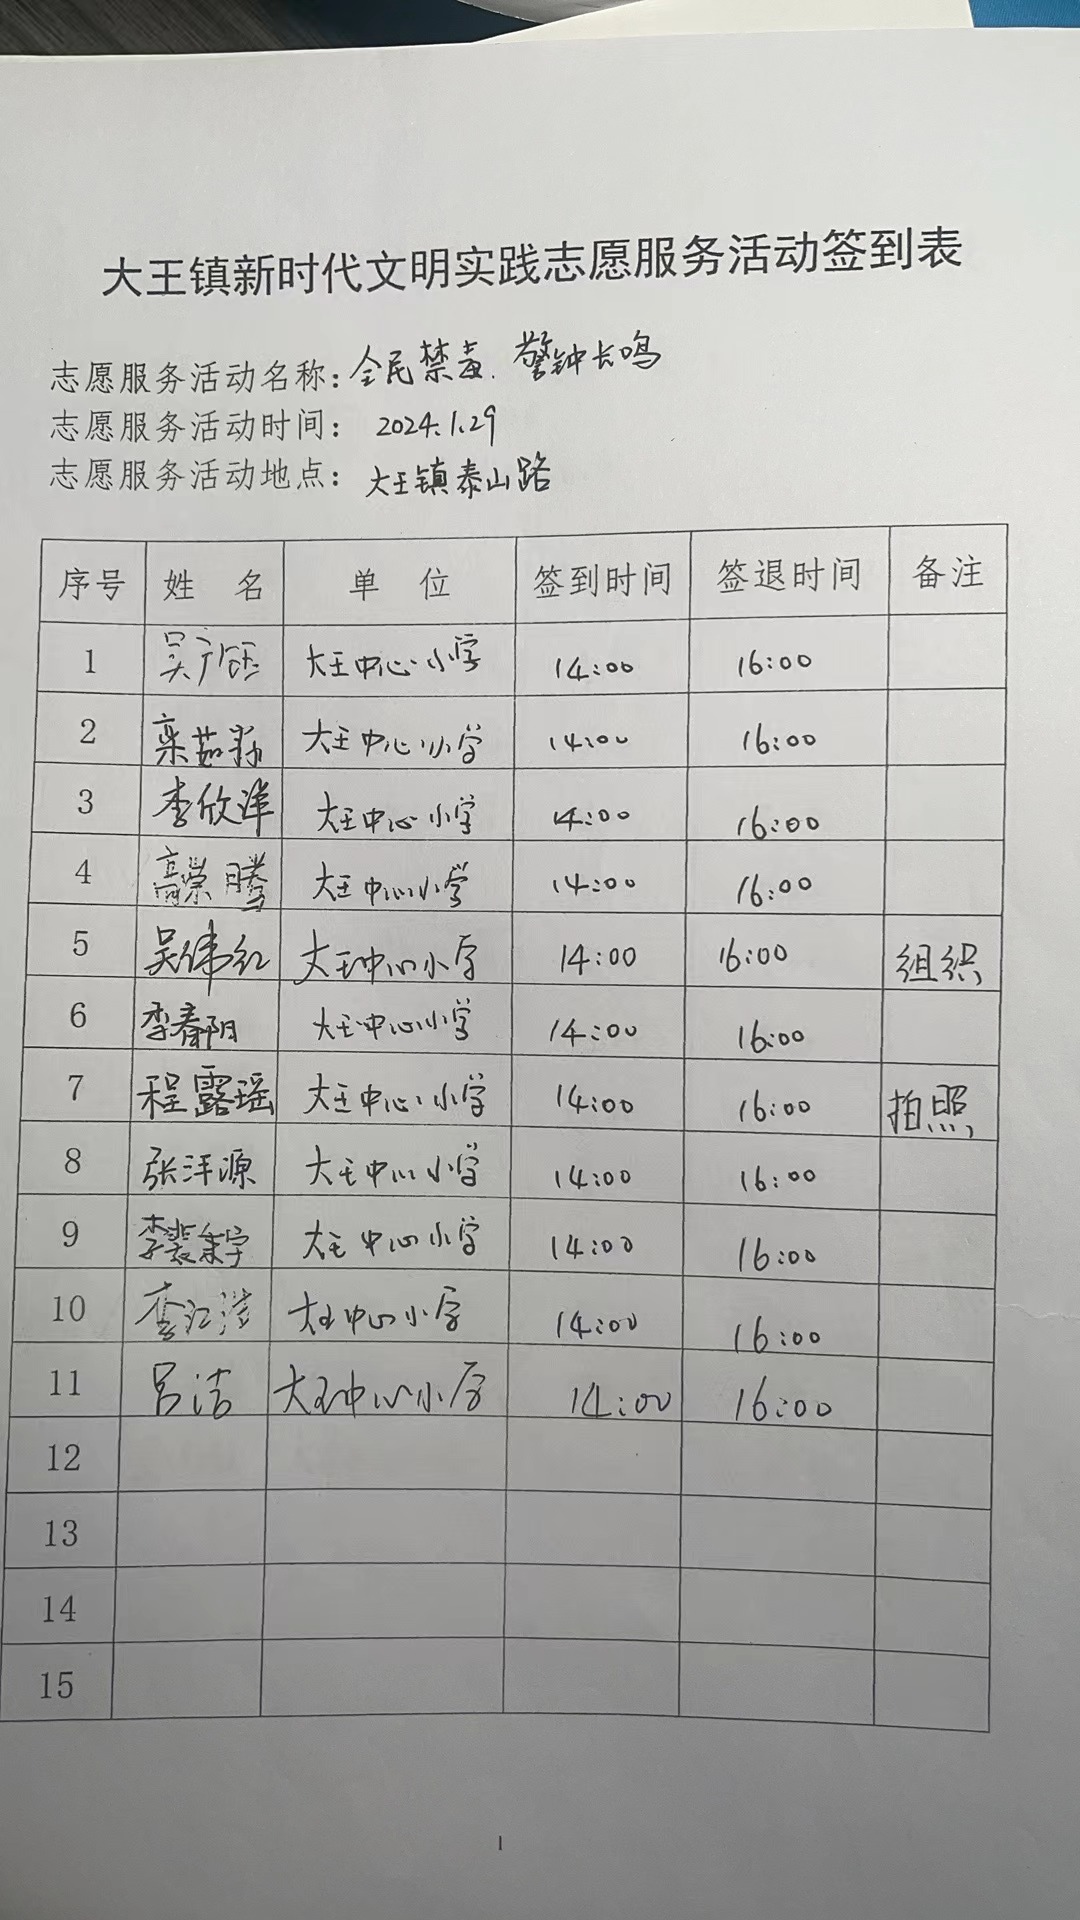 大王镇新时代文明实践志愿服务活动签到表
志愿服务活动名称：全民禁毒.警钟长鸣
志愿服务活动时间： 2024.1.29
志愿服务活动地点： 大王镇泰山路
序号 姓 名 单 位 签到时间 签退时间 备注
1 吴广钰 大王中心小学 14:00 16:00
2 栾茹 大王中心小学 14:00 16:00
3 李欣洋 大王中心小学 14:00 16:00
4 高崇腾 大王中心小学 14:00 16:00
5 吴伟红 大王中心小学 14:00 16:00 组织
6 李春阳 大王中心小学 14:00 16:00
7 程露瑶 大王中心小学 14:00 16:00 拍照
8 张洋源 大王中心小学 14:00 16:00
9 李裴宇 大王中心小学 14:00 16:00
10 李江涛 大王中心小学 14:00 16:00
11 吕洁 大王中心小学 14:00 16:00
12
13
14
15
1